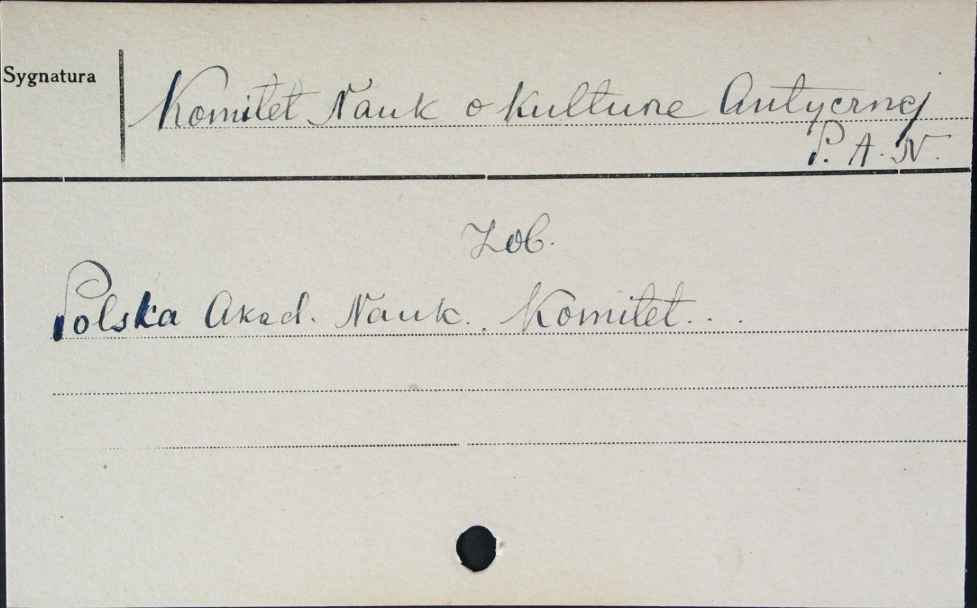 Sygnatura
Komitet Nauk o Kulturze Antycznej
P. A. N.
Zob.
Polska Akad. Nauk. Komitet...